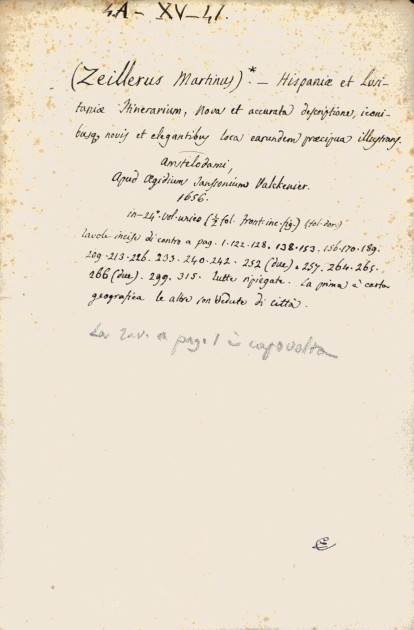 4A - XV - 41.
(Zeillerus Martinus)* . — Hispaniæ et Lusi-
taniæ Itinerarium, Nova et accurata descriptione, iconi-
busq, novis et elegantibus loca earundem præcipua illustrans.
Amstelodami,
Apud Ægidium Janssonium Valckenier.
1656.
in-24° vol. unico (½ fol. front. inc. fig.) (tol. dor.)
tavole incise di contro a pag. 1. 122. 128. 138. 153. 156. 170. 189.
209. 213. 226. 233. 240. 242. 252 (due). 257. 264. 265.
266 (due). 299. 315. tutte ripiegate. La prima è carta
geografica le altre son Vedute di città.
La tav. a pag. 1 è capovolta